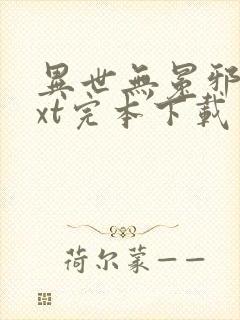 異世無冕邪
xt完本下載
荷尔蒙——